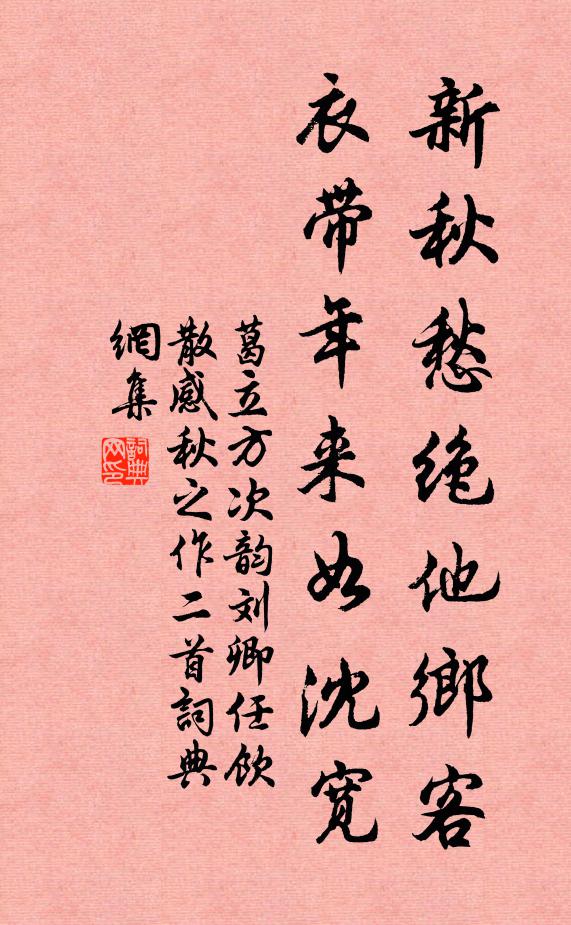 新秋愁绝他鄉客
衣带年来如沈寛
葛立方次韵刘卿任飲
散感秋之作二首詞典
網集
詞典
网印